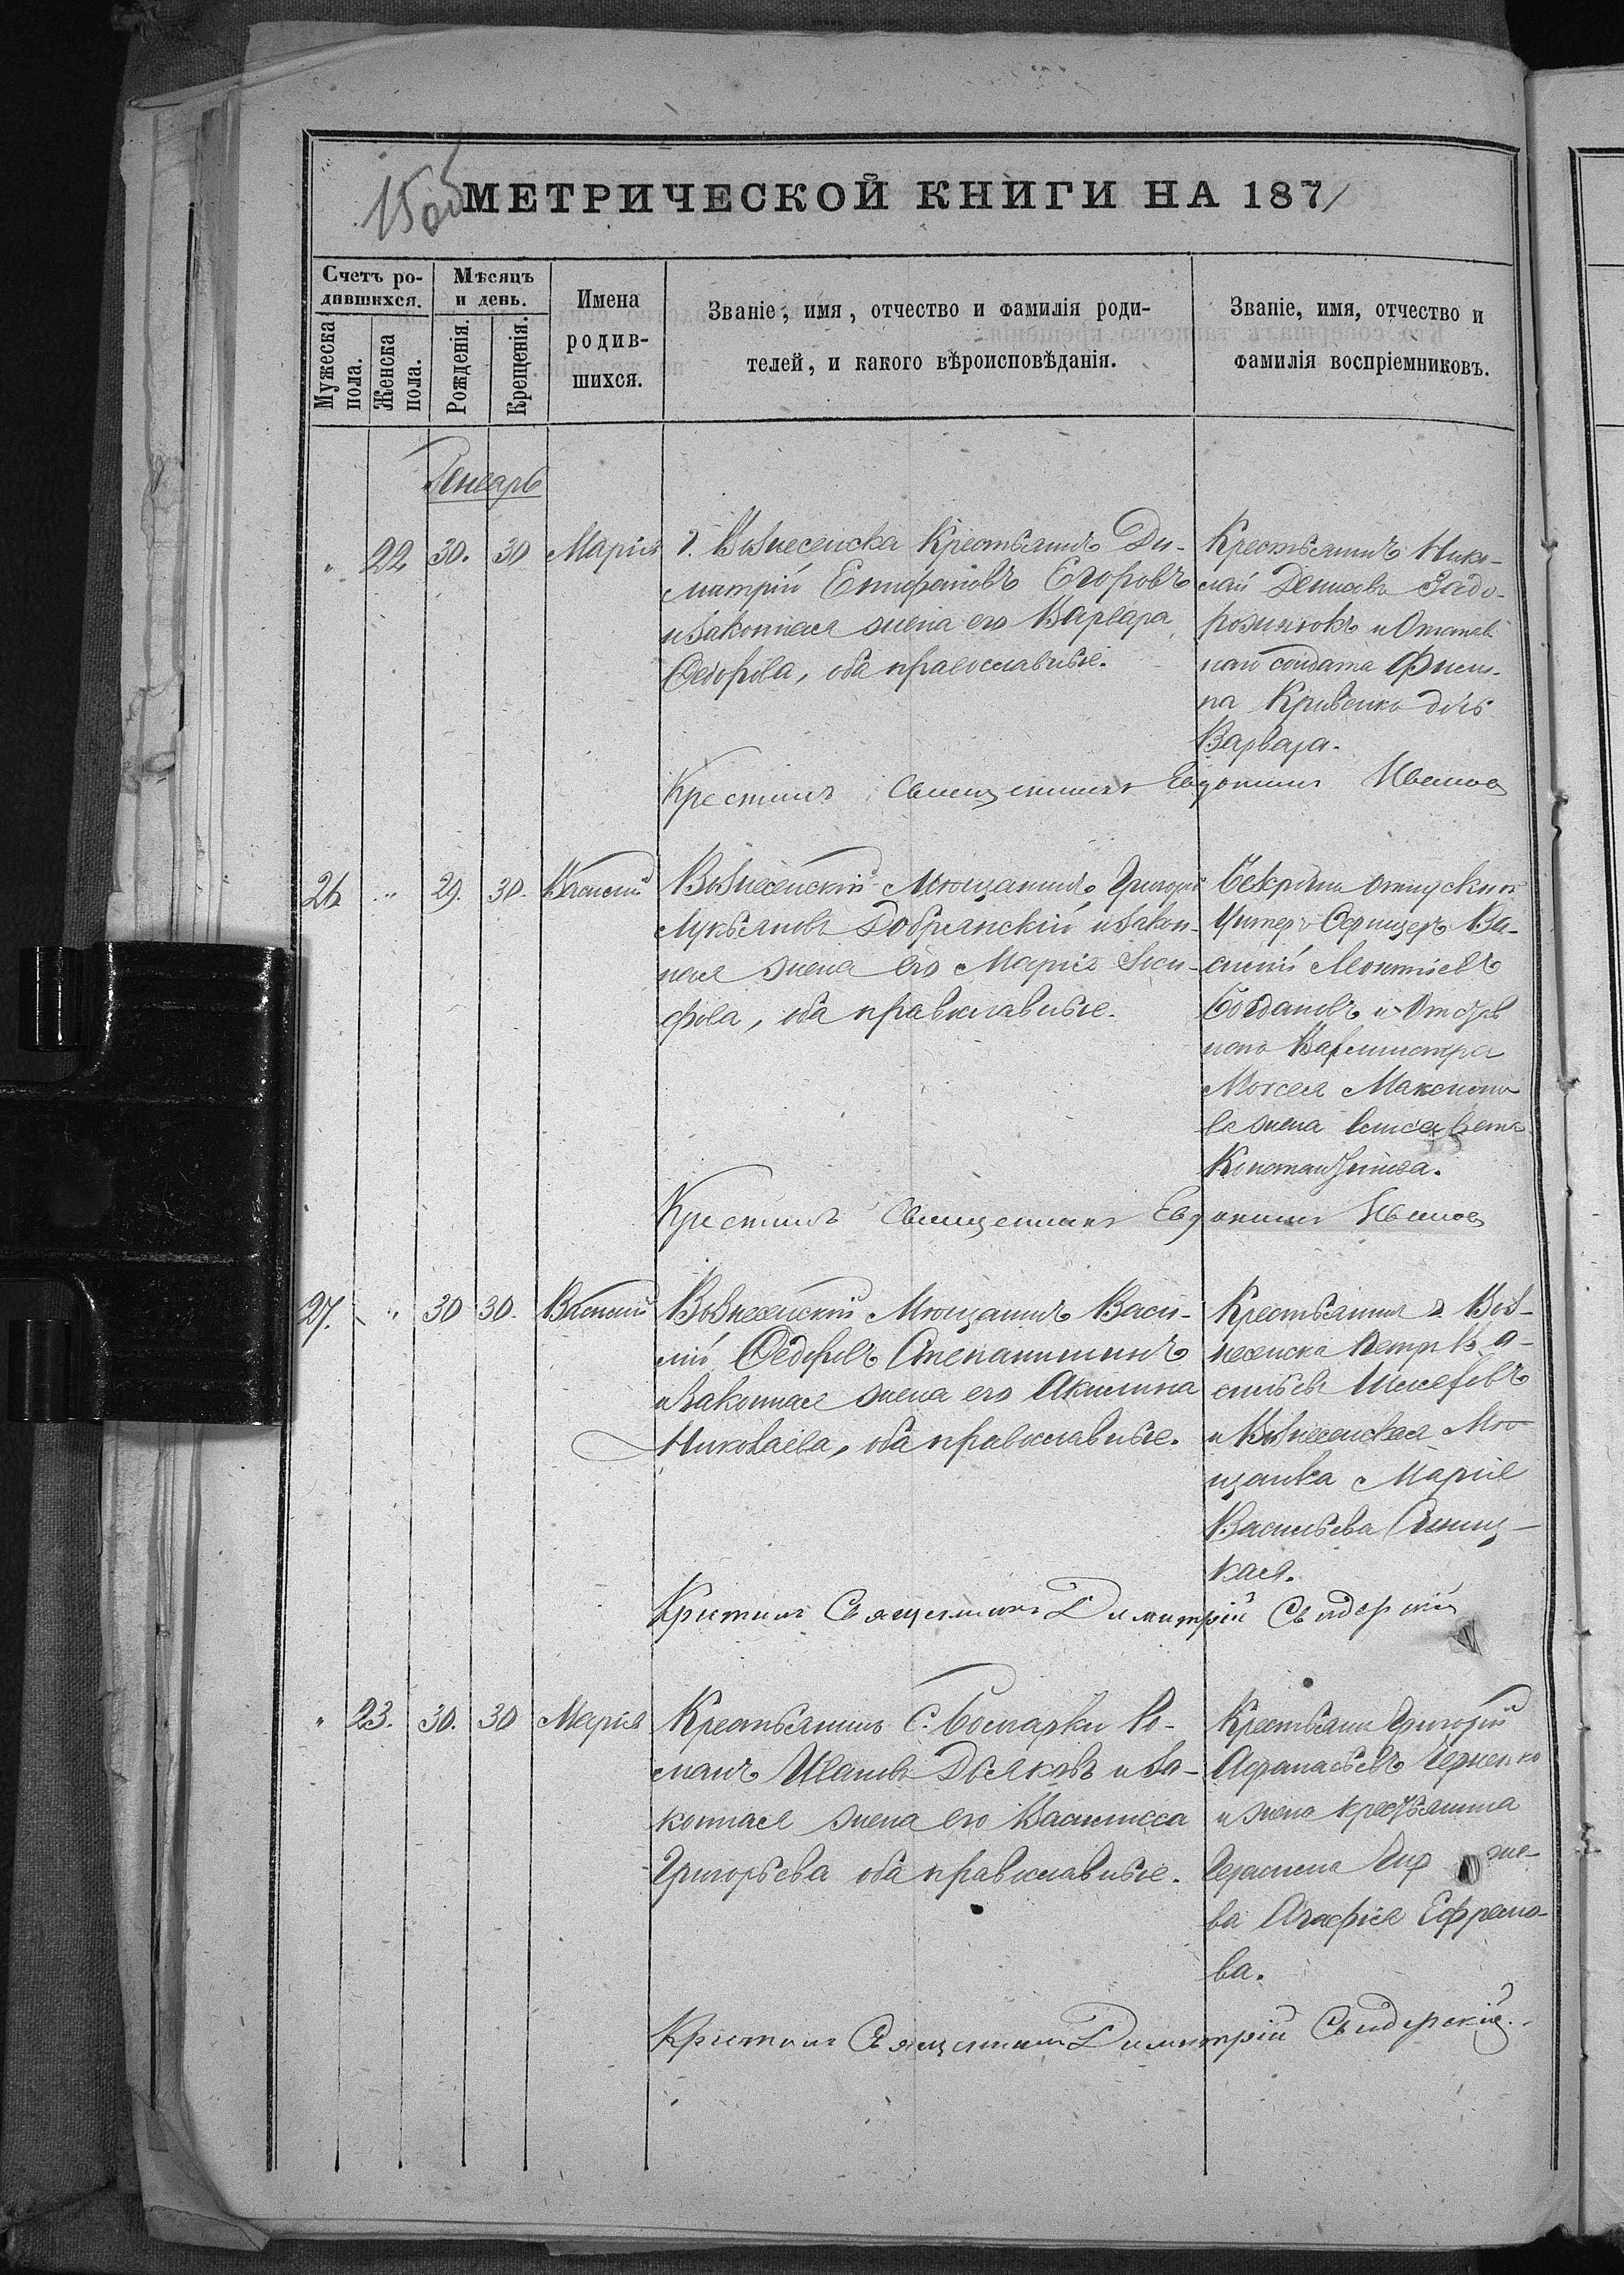 15об
МЕТРИЧЕСКОЙ КНИГИ НА 1871
Счетъ ро-
дившихся.
Мѣсяцъ
и день.
Мужеска
пола.
Женска
пола.
Рожденія.
Крещенія.
Имена
родив-
шихся.
Званіе, имя, отчество и фамилія роди-
телей, и какого вѣроисповѣданія.
Званіе, имя, отчество и
фамилія воспріемниковъ.
Генварь
" 22 30. 30 Марія
г. Вознесенска Крестьянинъ Ди-
митрій Епифановъ Егоровъ
и законная жена его Варвара
Федорова, оба православные.
Крестьянинъ Нико-
лай Денисовъ Задо-
рожнюкъ и Отстав
наго солдата Филип-
па Кривенко дочь
Варвара.
Крестилъ Священникъ Евдокимъ Иванов
26. " 29. 30. Василій
Вознесенскій Мѣщанинъ Григорій
Лукьяновъ Добрянскій и закон-
ная жена его Марія Іоси-
фова, оба православные.
Безсрочно отпускной
Унтеръ Офицеръ Ва-
силій Леонтіевъ
Богдановъ и Отстав
наго Вахмистра
Моисея Максимо
ва жена Елисавета
Константинова.
Крестилъ Священникъ Евдокимъ Иванов
27. " 30 30. Василій
Вознесенскій Мѣщанинъ Васи-
лій Федоровъ
и законная жена его Акилина
Николаева, оба православные.
Крестьянинъ г. Воз-
несенска Петръ Ва-
сильевъ
и Вознесенская Мѣ
щанка Марія
Васильева
кая.
Крестилъ Священникъ Димитрій Свидерскій
" 23. 30. 30 Марія
Крестьянинъ С. Болгарки Ро-
манъ Ивановъ Дьяковъ и за-
конная жена его Василисса
Григорьева оба православные.
Крестьянин Григорій
Афанасьевъ Черненко
и жена крестьянина
Герасима
ва Агафія Ефремо-
ва.
Крестилъ Священникъ Димитрій Свидерскій.